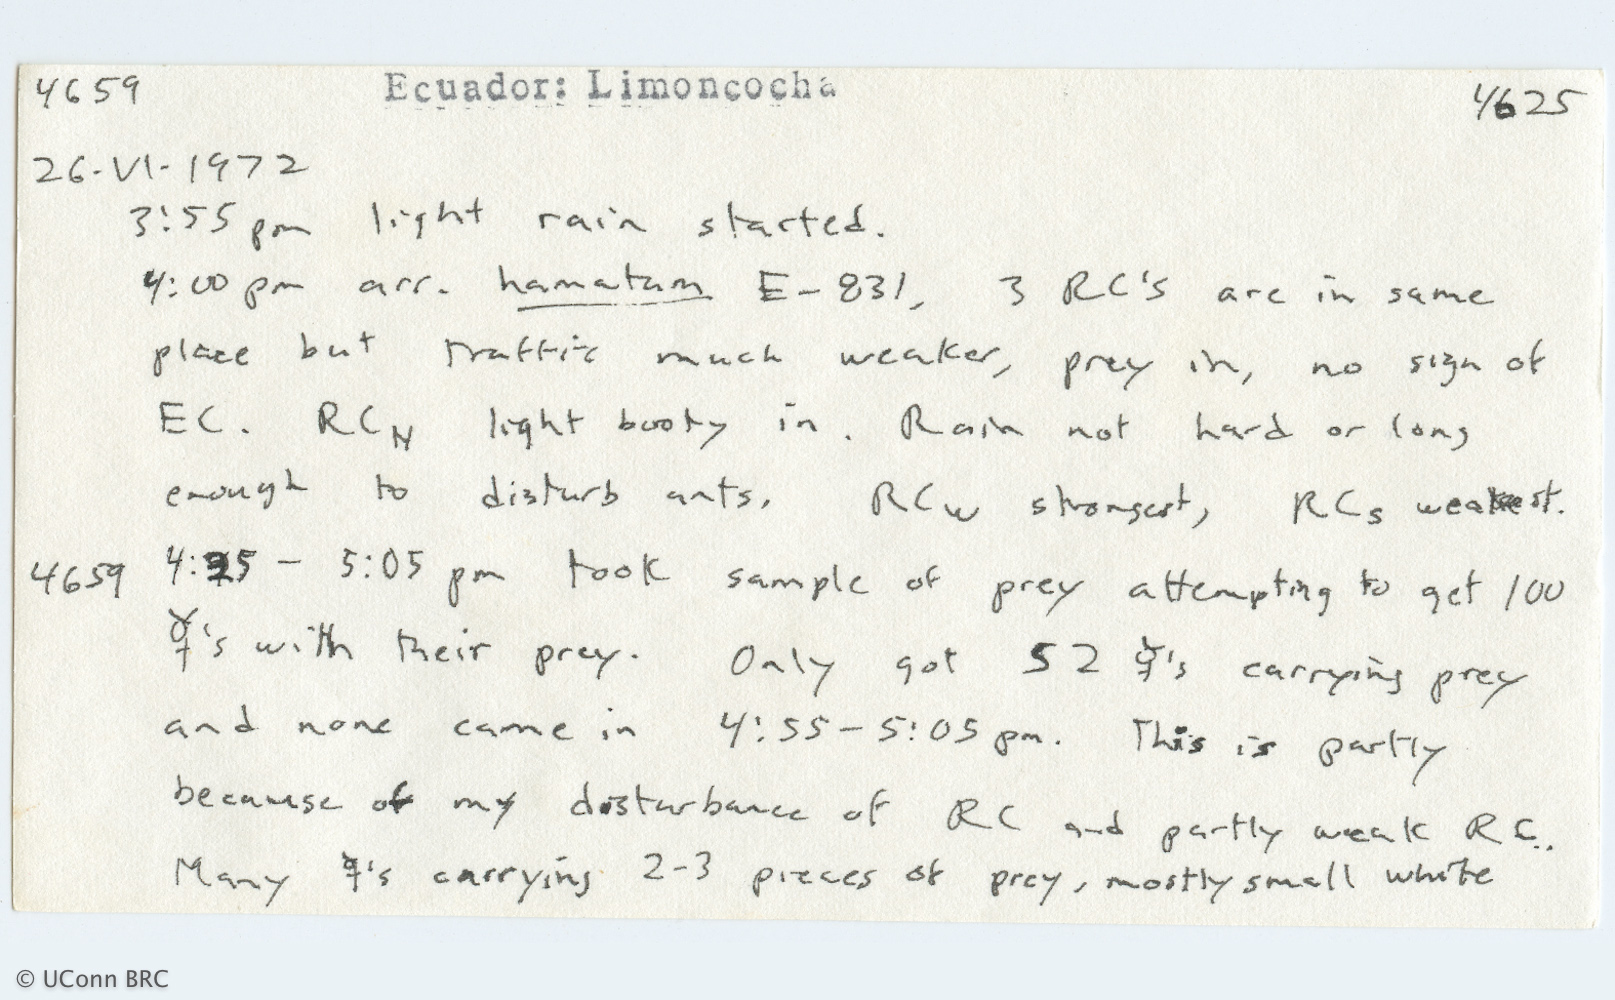 4659 Ecuador: Limoncocha 4625
26-VI-1972
3:55 pm light rain started.
4:00 pm arr. hamatum E-831, 3 RC's are in same
place but traffic much weaker, prey in, no sign of
EC. RCN light booty in. Rain not hard or long
enough to disturb ants. RCW strongest, RCS weakest.
4659 - 5:05 pm took sample of prey attempting to get 100
☿'s with their prey. Only got 52 ☿'s carrying prey
and none came in 4:55-5:05 pm. This is partly
because of my disturbance of RC and partly weak RC.
Many ☿'s carrying 2-3 pieces of prey, mostly small white
© UConn BRC